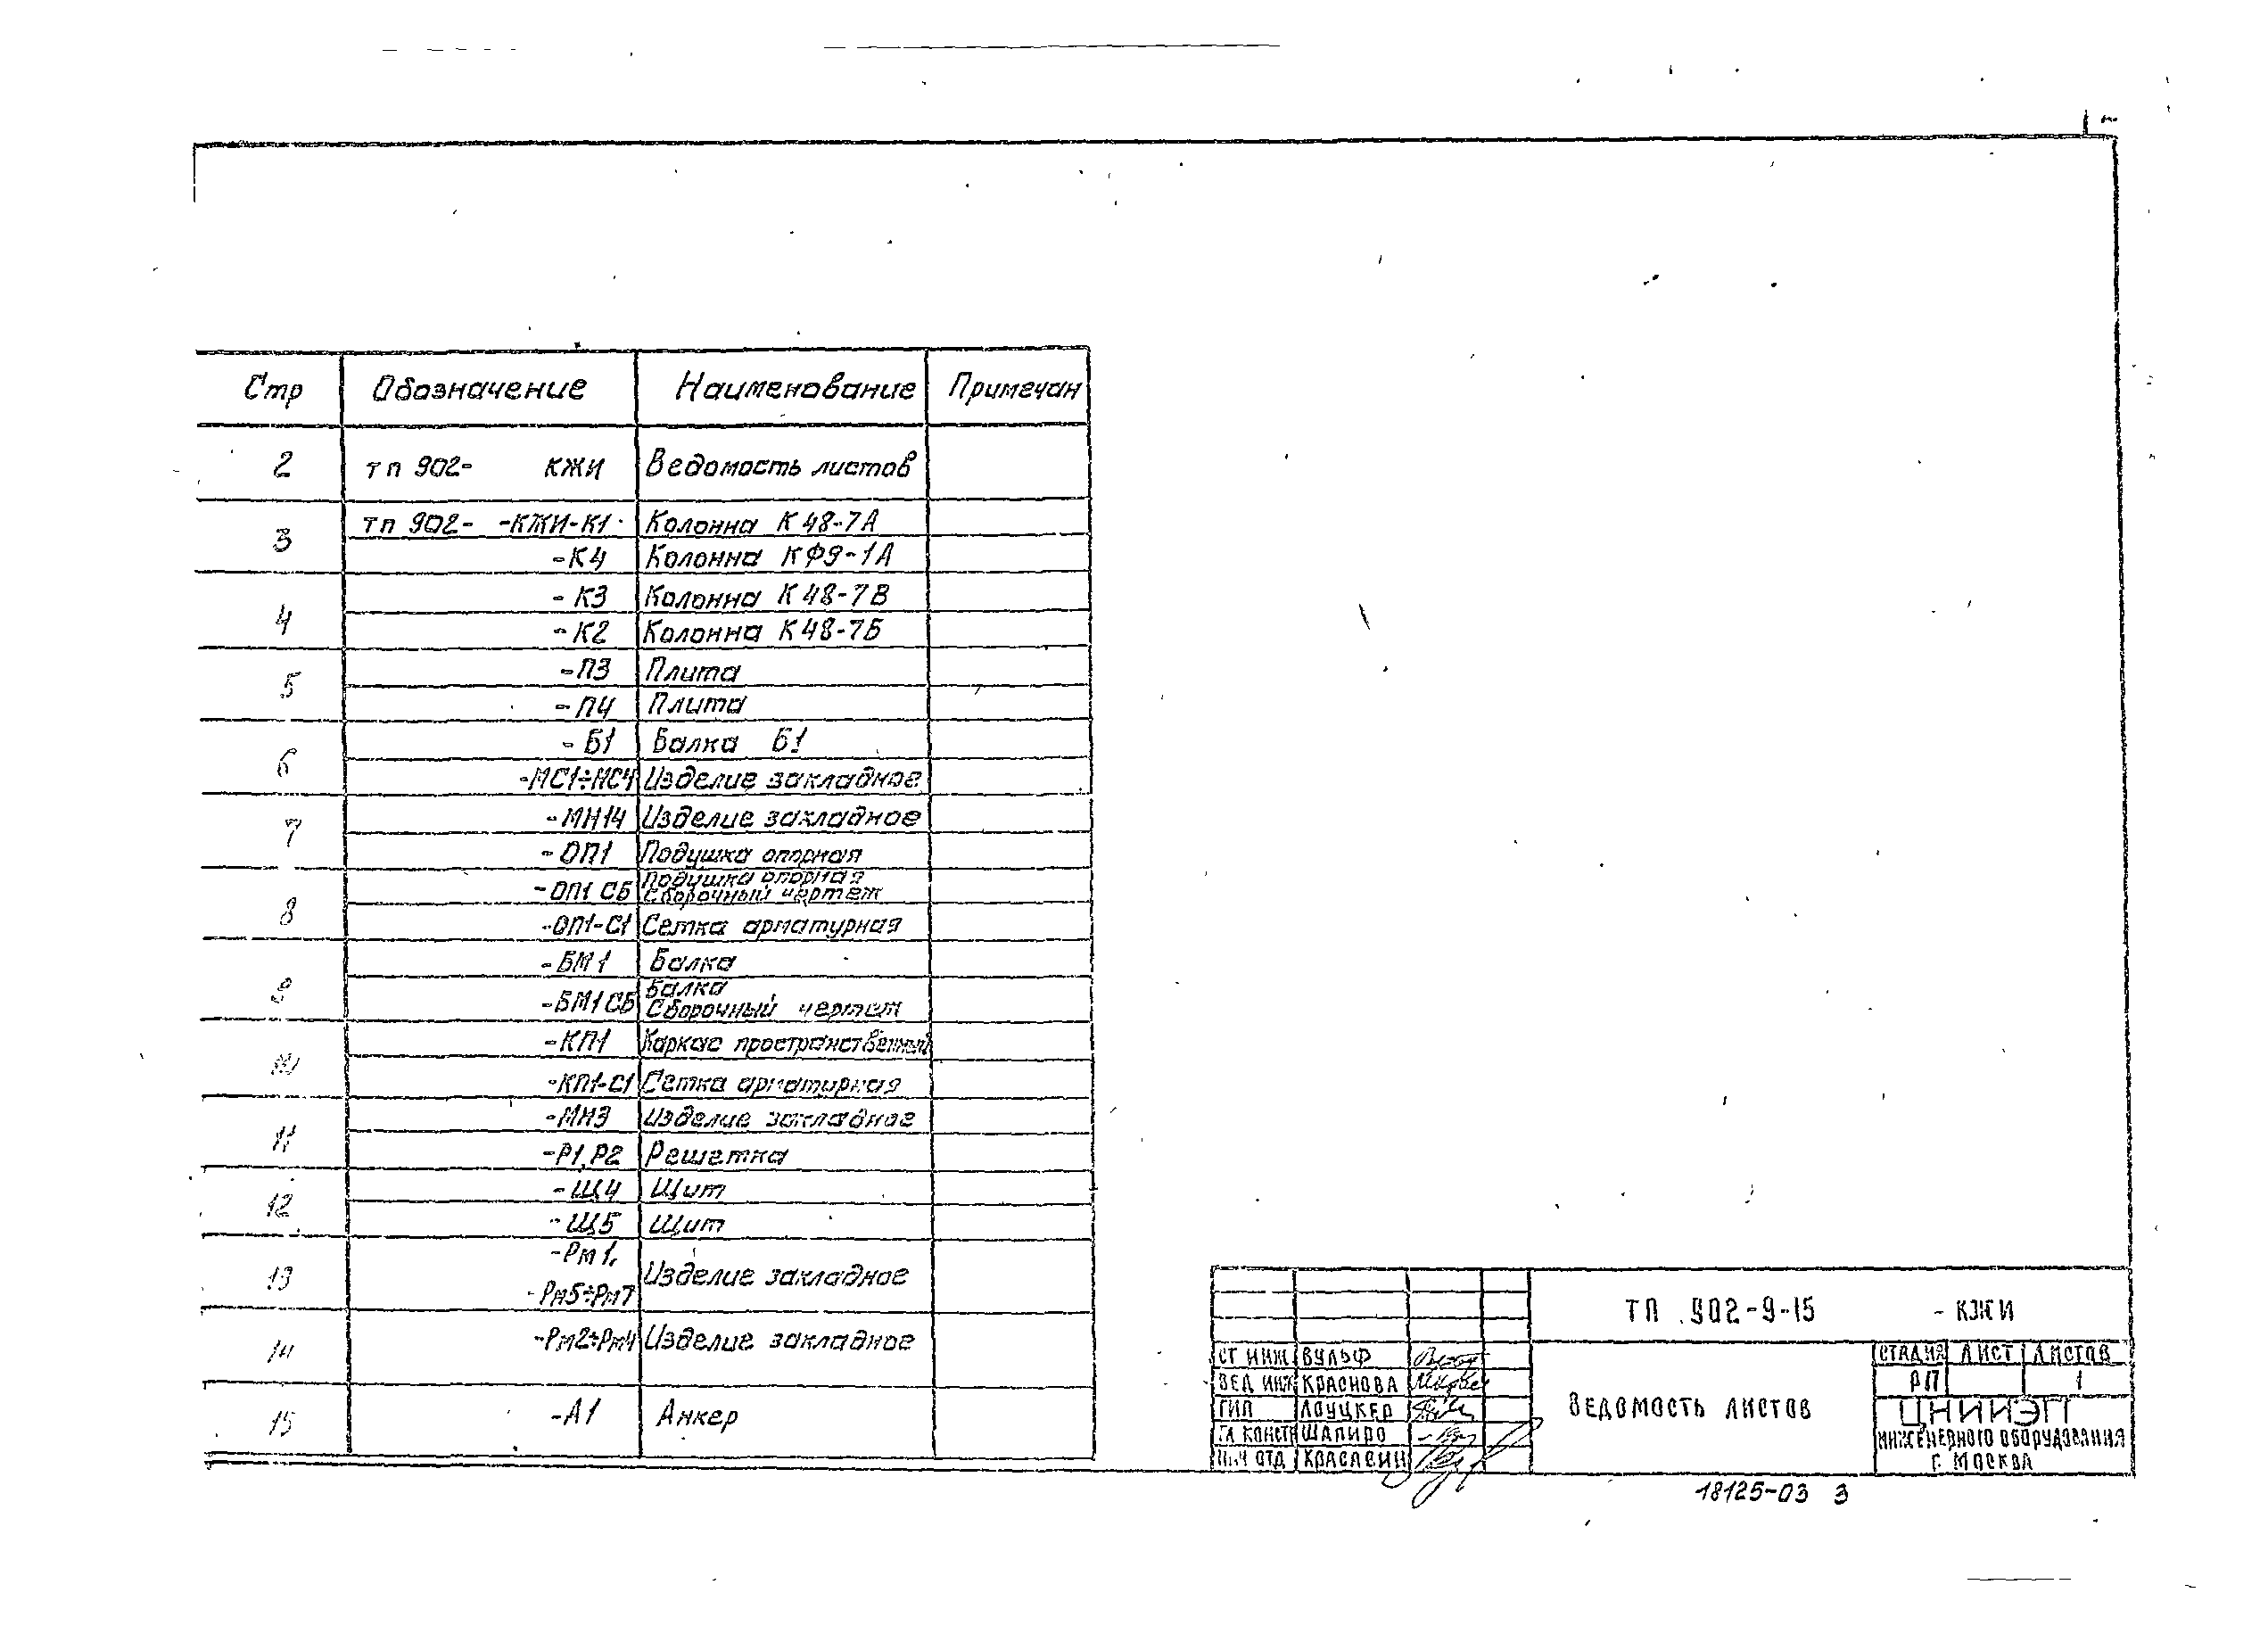 Стр Обозначение Наименование Примечан
2 тп 902- КЖИ Ведомость листов
3 тп 902- -КЖИ-К1 Колонна К48-7А
-К4 Колонна КФ9-1А
4 -К3 Колонна К48-7В
-К2 Колонна К48-7Б
5 -П3 Плита
-П4 Плита
6 -Б1 Балка Б1
-МС1÷МС4 Изделие закладное
7 -МН14 Изделие закладное
-ОП1 Подушка опорная
8 -ОП1 СБ Подушка опорная
Сборочный чертеж
-ОП1-С1 Сетка арматурная
9 -БМ1 Балка
-БМ1 СБ Балка
Сборочный чертеж
10 -КП1 Каркас пространственный
-КП1-С1 Сетка арматурная
11 -МН3 Изделие закладное
-Р1, Р2 Решетка
12 -Щ4 Щит
-Щ5 Щит
13 -Рм1,
-Рм5÷Рм7 Изделие закладное
14 -Рм2÷Рм4 Изделие закладное
15 -А1 Анкер
ТП 902-9-15 - КЖИ
СТ ИНЖ ВУЛЬФ
ВЕД ИНЖ КРАСНОВА
ГИП ЛОУЦКЕР
ГЛ КОНСТР ШАПИРО
НАЧ ОТД КРАСАВИН
ВЕДОМОСТЬ ЛИСТОВ
СТАДИЯ ЛИСТ ЛИСТОВ
РП 1
ЦНИИЭП
ИНЖЕНЕРНОГО ОБОРУДОВАНИЯ
Г. МОСКВА
18125-03 3